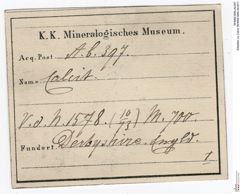 K.K. Mineralogisches Museum.
Acq. Post A.b. 397.
Name Calcit.
V.d.N. 1578. (10/93) M. 700
Fundort Derbyshire Engld.
1